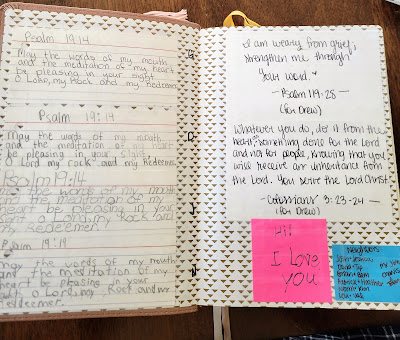 Psalm 19:14
May the words of my mouth
and the meditation of my heart
be pleasing in your sight,
O Lord, my Rock and my Redeemer.
Psalm 19:14
May the words of my mouth
and the meditation of my heart
be pleasing in your sight
O Lord my Rock and my Redeemer.
Psalm 19:14
the words of my mouth
and the meditation of my
be pleasing in
O Lord, my Rock and
my Redeemer
Psalm 19:14
May the words of my mouth
the meditation of my
heart be pleasing in your
O Lord, my Rock and my
Redeemer.
I am weary from grief,
strengthen me through
Your word.
- Psalm 119:28 -
(for Drew)
Whatever you do, do it from the
heart, as something done for the Lord
and not for people, knowing that you
will receive an inheritance from
the Lord. You serve the Lord Christ.
- Colossians 3:23-24 -
(for Drew)
Hi!
I Love
YOU
Neighbors